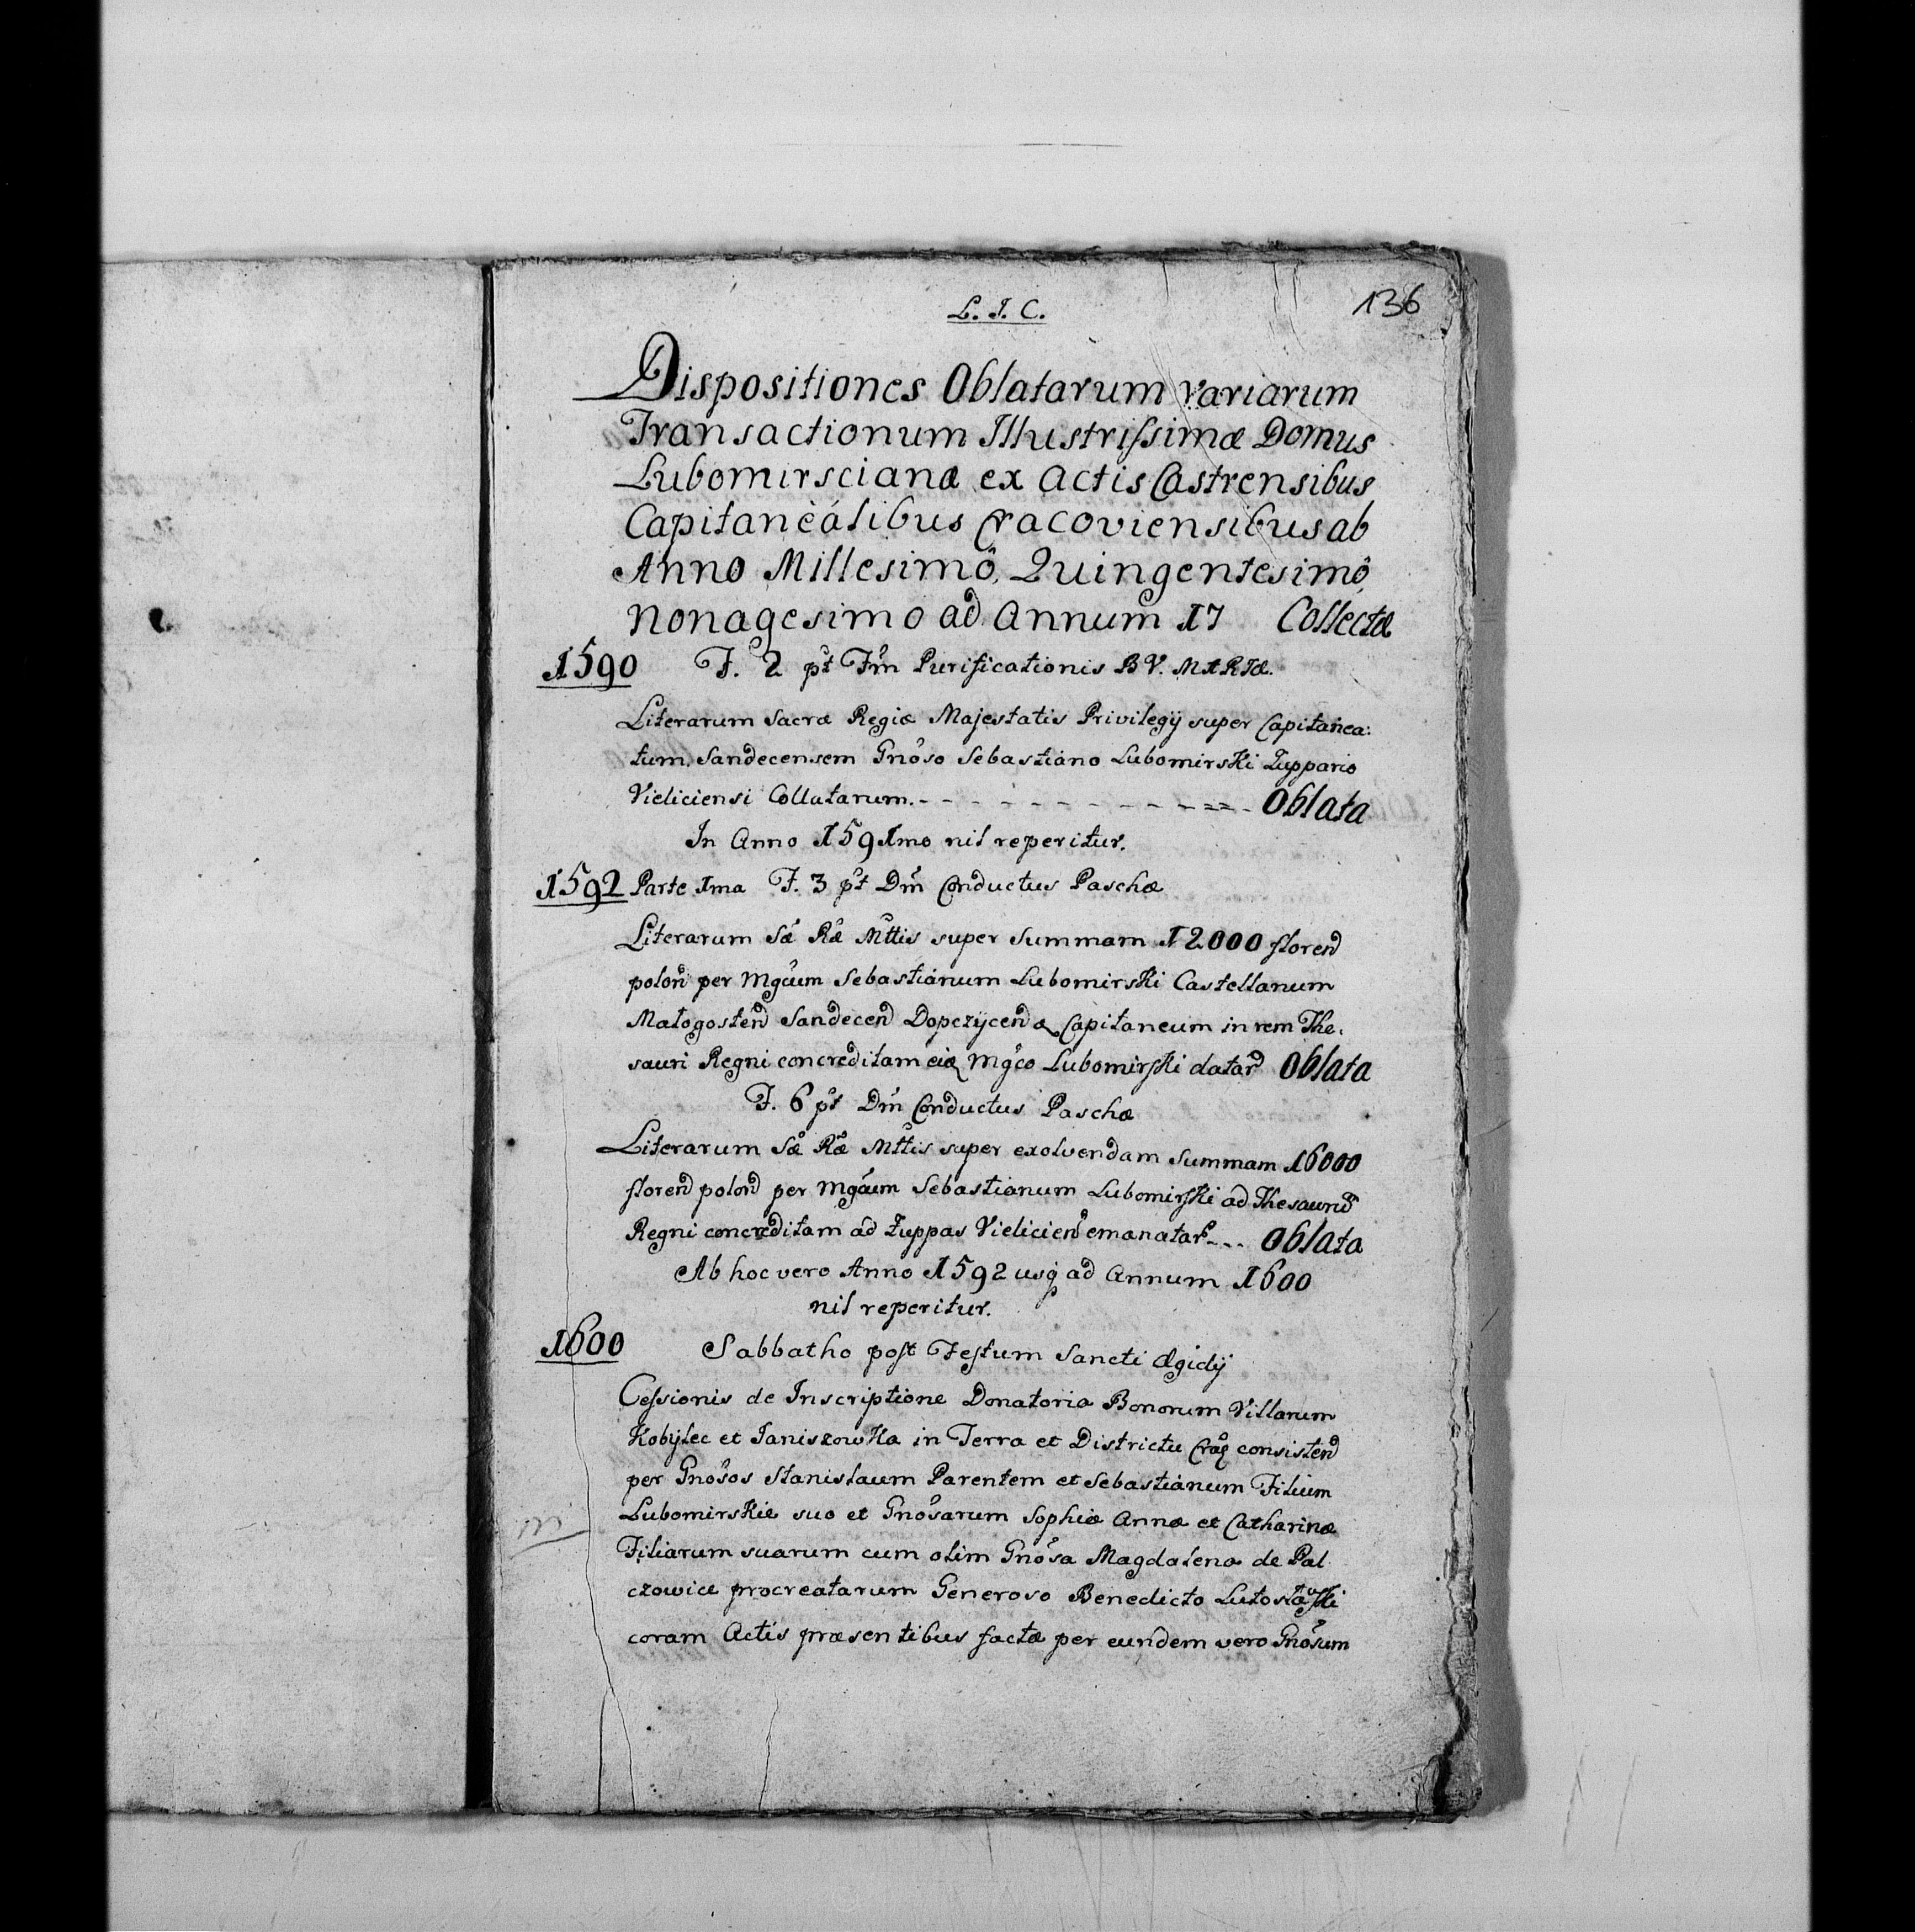 L. J. C.
136
Dispositiones Oblatarum variarum
Transactionum Illustrissimæ Domus
Lubomirscianæ ex Actis Castrensibus
Capitaneálibus Cracoviensibus ab
Anno Millesimô, Quingentesimô
Nonagesimo ad Annum 17 Collectæ
1590 F. 2 pt Fm Purificationis B V. MARIÆ.
Literarum Sacræ Regiæ Majestatis Privilegij super Capitanea:
tum Sandecensem Gnoso Sebastiano Lubomirski Zuppario
Vieliciensi Collatarum. - - - - - - - - - - - Oblata
In Anno 1591mo nil reperitur.
1592 Parte Ima F. 3 pt Dm Conductus Paschæ
Literarum Sæ Ræ Mttis super Summam 12000 floren
polon per Mgcum Sebastianum Lubomirski Castellanum
Małogosten Sandecen Dopczycenq Capitaneum in rem The-
sauri Regni concreditam eiq Mgco Lubomirski datar Oblata
F. 6 pt Dm Conductus Paschæ
Literarum Sæ Ræ Mttis super exolvendam Summam 16000
floren polon per Mgcum Sebastianum Lubomirski ad Thesaurum
Regni concreditam ad Zuppas Vielicien emanatar - - - Oblata
Ab hoc vero Anno 1592 usq ad Annum 1600
nil reperitur.
1600 Sabbatho post Festum Sancti Ægidij
Cessionis de Inscriptione Donatoria Bonorum Villarum
Kobylec et Janiszowka in Terra et Districtu Craq consisten
per Gnosos Stanislaum Parentem et Sebastianum Filium
Lubomirskie suo et Gnosarum Sophiæ Annæ et Catharinæ
Filiarum suarum cum olim Gnosa Magdalena de Pal
czowice procreatarum Generoso Benedicto Lutosławski
coram Actis præsentibus factæ per eundem vero Gnosum